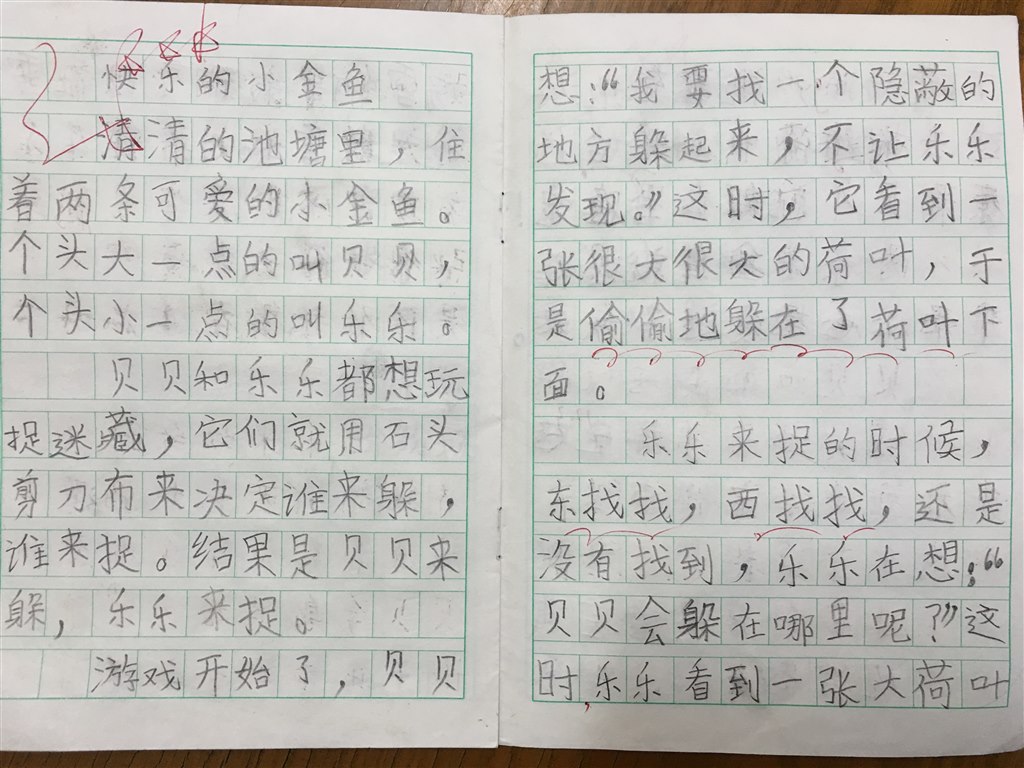 快乐的小金鱼
清清的池塘里，住
着两条可爱的小金鱼。
个头大一点的叫贝贝，
个头小一点的叫乐乐。
贝贝和乐乐都想玩
捉迷藏，它们就用石头
剪刀布来决定谁来躲，
谁来捉。结果是贝贝来
躲，乐乐来捉。
游戏开始了，贝贝
想：“我要找一个隐蔽的
地方躲起来，不让乐乐
发现。”这时，它看到一
张很大很大的荷叶，于
是偷偷地躲在了荷叶下
面。
乐乐来捉的时候，
东找找，西找找，还是
没有找到，乐乐在想：“
贝贝会躲在哪里呢？”这
时，乐乐看到一张大荷叶